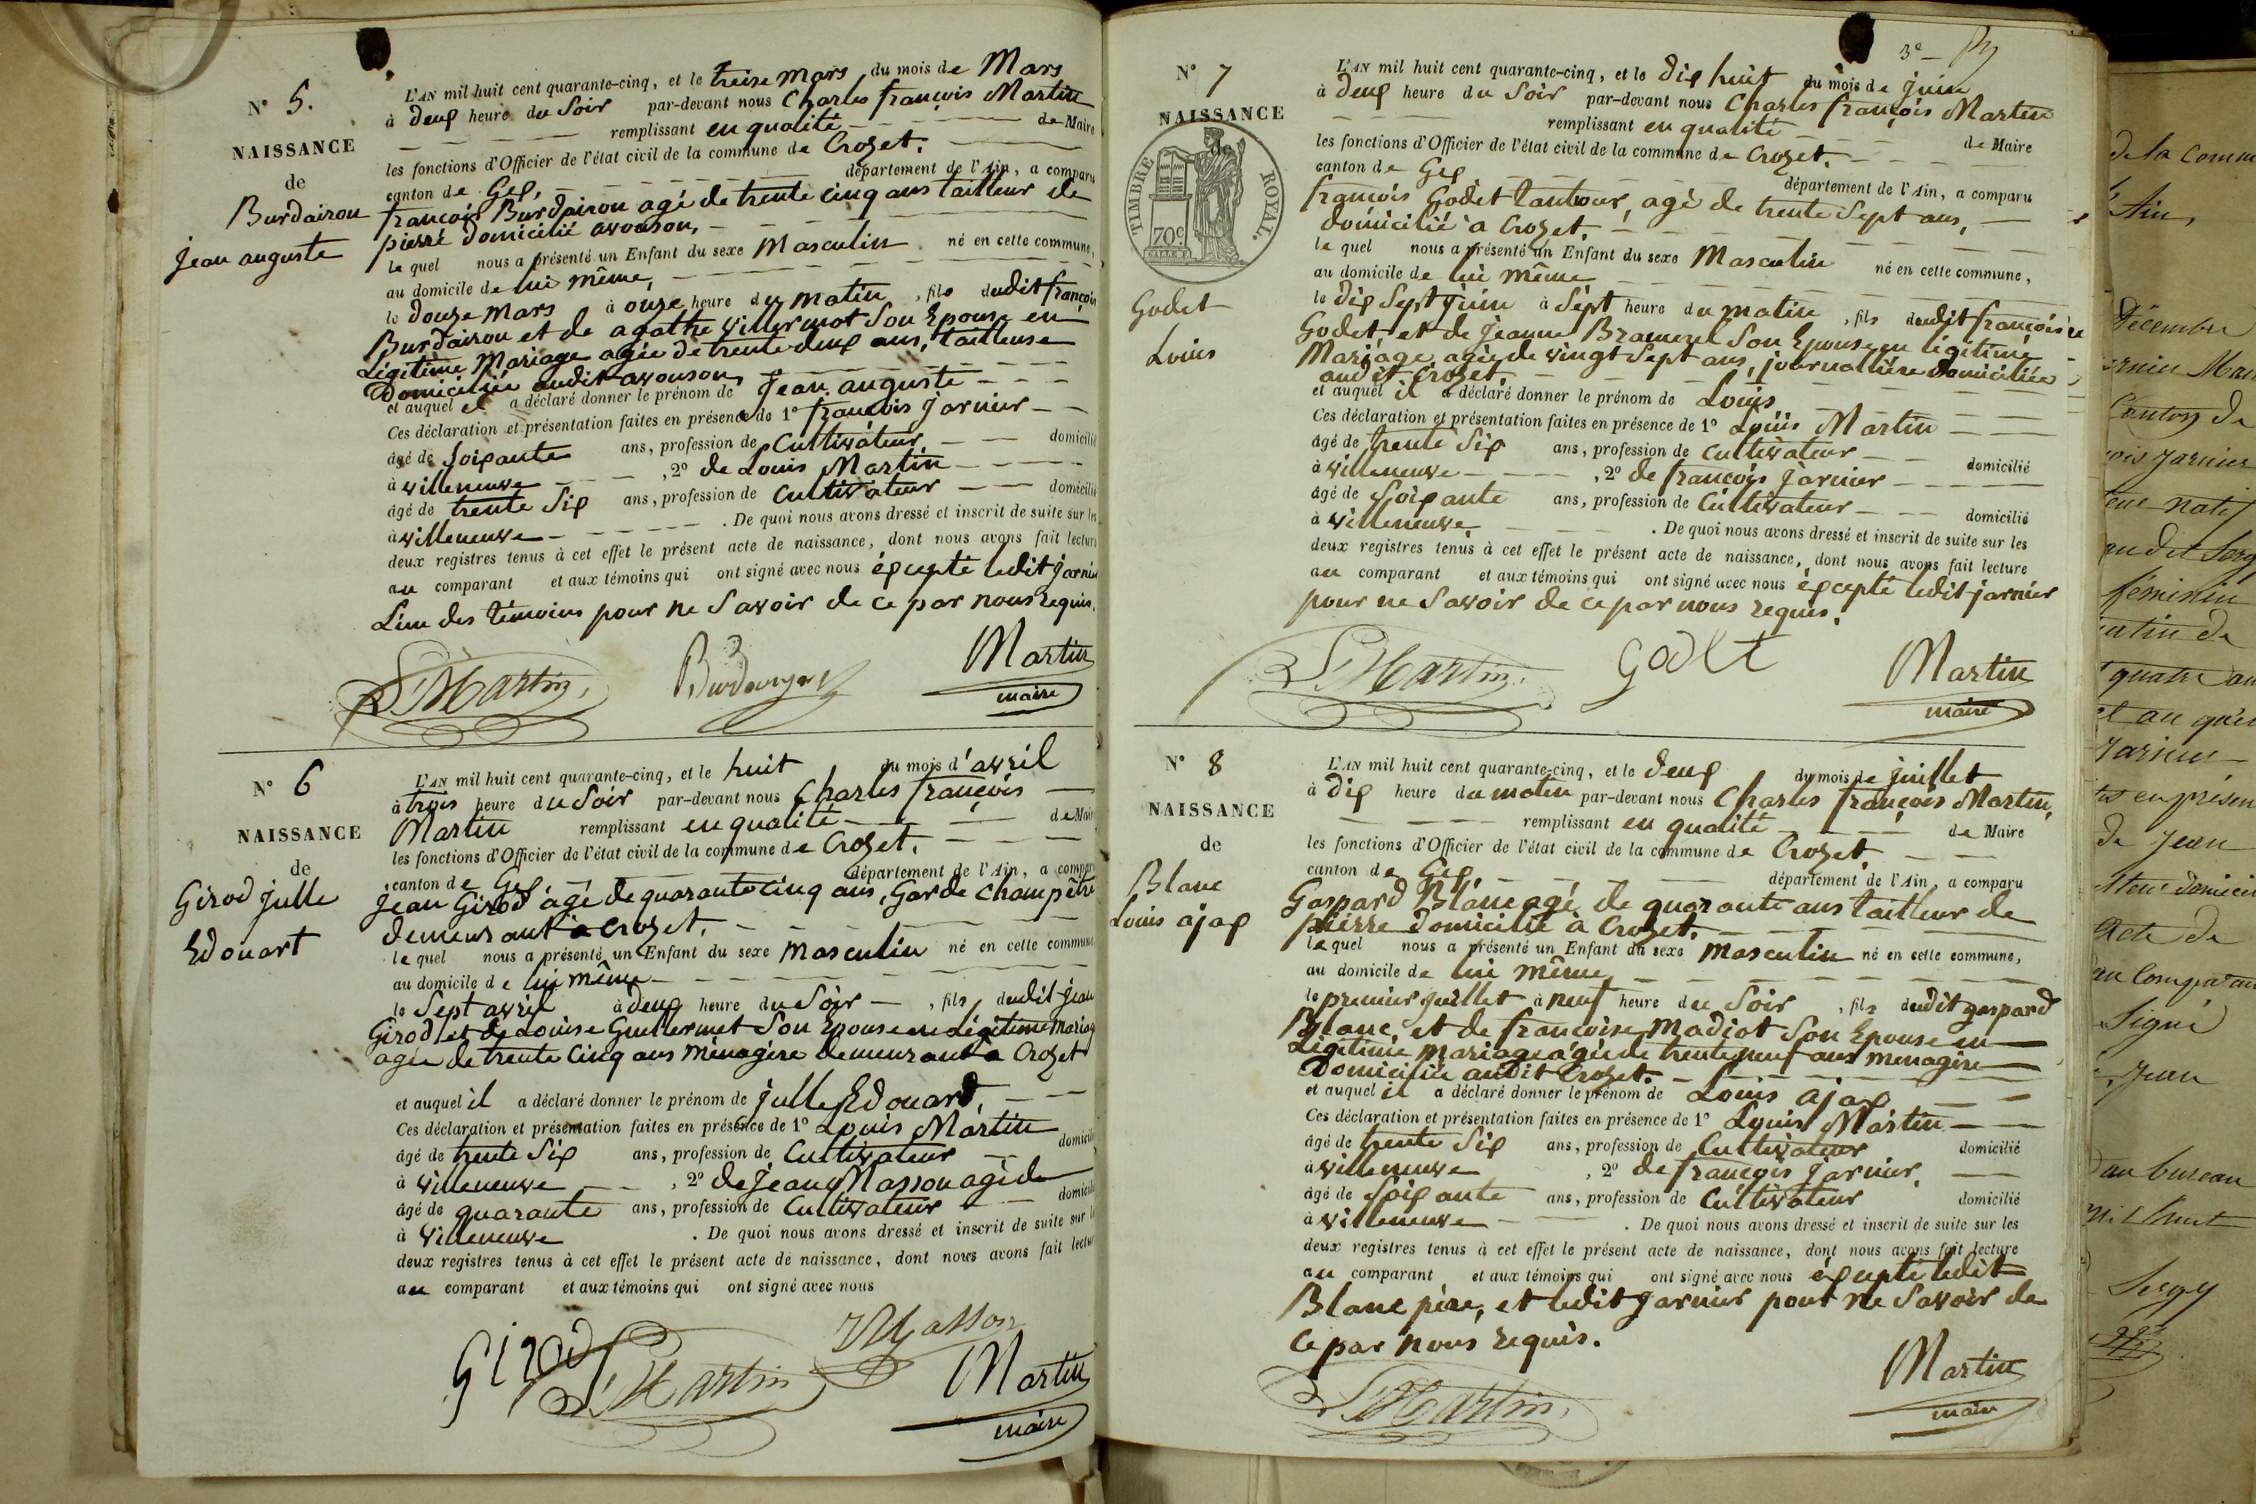 N° 5.
NAISSANCE
de
Burdairon
jean auguste
L'AN mil huit cent quarante-cinq, et le treise mars du mois de Mars
à deux heure du Soir par-devant nous Charles françois Martin
remplissant en qualité de Maire
les fonctions d'Officier de l'état civil de la commune de Crozet.
canton de Gex, département de l'Ain, a comparu
françois Burdairon agé de trente cinq ans tailleur de
pierre domicilié avouson,
le quel nous a présenté un Enfant du sexe Masculin né en cette commune,
au domicile de lui même,
le douze mars à onze heure du matin, fils dudit françois
Burdairon et de agathe villermot Son Epouse en
Légitime Mariage agée de trente deux ans, tailleuse
Domiciliée audit avouson,
et auquel il a déclaré donner le prénom de Jean auguste
Ces déclaration et présentation faites en présence de 1° françois jarnier
âgé de Soixante ans, profession de Cultivateur domicilié
à villeneuve, 2° de Louis Martin
âgé de trente Six ans, profession de Cultivateur domicilié
à villeneuve. De quoi nous avons dressé et inscrit de suite sur les
deux registres tenus à cet effet le présent acte de naissance, dont nous avons fait lecture
au comparant et aux témoins qui ont signé avec nous éxcepté ledit jarnier
L'un des témoins pour ne Savoir de ce par nous requis.
L Martin
Martin
maire
N° 6
NAISSANCE
de
Girod julle
Edouart
L'AN mil huit cent quarante-cinq, et le huit du mois d'avril
à trois heure du Soir par-devant nous Charles françois
Martin remplissant en qualité de Maire
les fonctions d'Officier de l'état civil de la commune de Crozet.
canton de Gex, département de l'Ain, a comparu
Jean Girod agé de quarante cinq ans, Garde champêtre
demeurant à Crozet.
le quel nous a présenté un Enfant du sexe Masculin né en cette commune
au domicile de lui même
le Sept avril à deux heure du Soir, fils dudit jean
Girod et de Louise Guillermet Son Epouse en Légitime mariag
agée de trente Cinq ans ménagère demeurant à Crozet
et auquel il a déclaré donner le prénom de julle Edouard,
Ces déclaration et présentation faites en présence de 1° Louis Martin
âgé de trente Six ans, profession de Cultivateur domicilié
à villeneuve, 2° de Jean Masson agé de
âgé de quarante ans, profession de Cultivateur domicilié
à villeneuve. De quoi nous avons dressé et inscrit de suite sur l
deux registres tenus à cet effet le présent acte de naissance, dont nous avons fait lectur
au comparant et aux témoins qui ont signé avec nous
Girod
L Martin
Masson
Martin
maire
3e
N° 7
NAISSANCE
de
TIMBRE ROYAL.
70c
Godet
Louis
L'AN mil huit cent quarante-cinq, et le dix huit du mois de juin
à deux heure du Soir par-devant nous Charles françois Martin
remplissant en qualité de Maire
les fonctions d'Officier de l'état civil de la commune de Crozet.
canton de Gex département de l'Ain, a comparu
françois Godet tambour, agé de trente Sept ans,
domicilié à Crozet.
le quel nous a présenté un Enfant du sexe Masculin né en cette commune,
au domicile de lui même
le dix Sept juin à Sept heure du matin, fils dudit françois
Godet et de jeanne Bramerel Son Epouse en légitime
Mariage agée de vingt Sept ans, journalière domiciliée
audit Crozet.
et auquel il a déclaré donner le prénom de Louis
Ces déclaration et présentation faites en présence de 1° Louis Martin
âgé de trente Six ans, profession de Cultivateur domicilié
à villeneuve, 2° de françois jarnier
âgé de Soixante ans, profession de Cultivateur domicilié
à villeneuve. De quoi nous avons dressé et inscrit de suite sur les
deux registres tenus à cet effet le présent acte de naissance, dont nous avons fait lecture
au comparant et aux témoins qui ont signé avec nous éxcepté ledit jarnier
pour ne Savoir de ce par nous requis.
L Martin
Godet
Martin
maire
N° 8
NAISSANCE
de
Blanc
Louis ajax
L'AN mil huit cent quarante-cinq, et le deux du mois de juillet
à dix heure du matin par-devant nous Charles françois Martin,
remplissant en qualité de Maire
les fonctions d'Officier de l'état civil de la commune de Crozet,
canton de Gex, département de l'Ain, a comparu
Gaspard Blanc agé de quarante ans tailleur de
pierre domicilié à Crozet.
le quel nous a présenté un Enfant du sexe Masculin né en cette commune,
au domicile de lui même
le premier juillet à neuf heure du Soir, fils dudit gaspard
Blanc, et de françoise Madiot Son Epouse en
Légitime Mariage agée de trente neuf ans menagère
Domiciliée audit Crozet.
et auquel il a déclaré donner le prénom de Louis ajax
Ces déclaration et présentation faites en présence de 1° Louis Martin
âgé de trente Six ans, profession de Cultivateur domicilié
à villeneuve, 2° de françois jarnier.
âgé de Soixante ans, profession de Cultivateur domicilié
à villeneuve. De quoi nous avons dressé et inscrit de suite sur les
deux registres tenus à cet effet le présent acte de naissance, dont nous avons fait lecture
au comparant et aux témoins qui ont signé avec nous éxcepté ledit
Blanc père, et ledit jarnier pour ne Savoir de
ce par nous requis.
L Martin
Martin
maire
de la comm
Ain,
Décembre
Canton de
féminin
quatre an
de jean
acte de
Signé
jean
au bureau
mil huit
Sergy